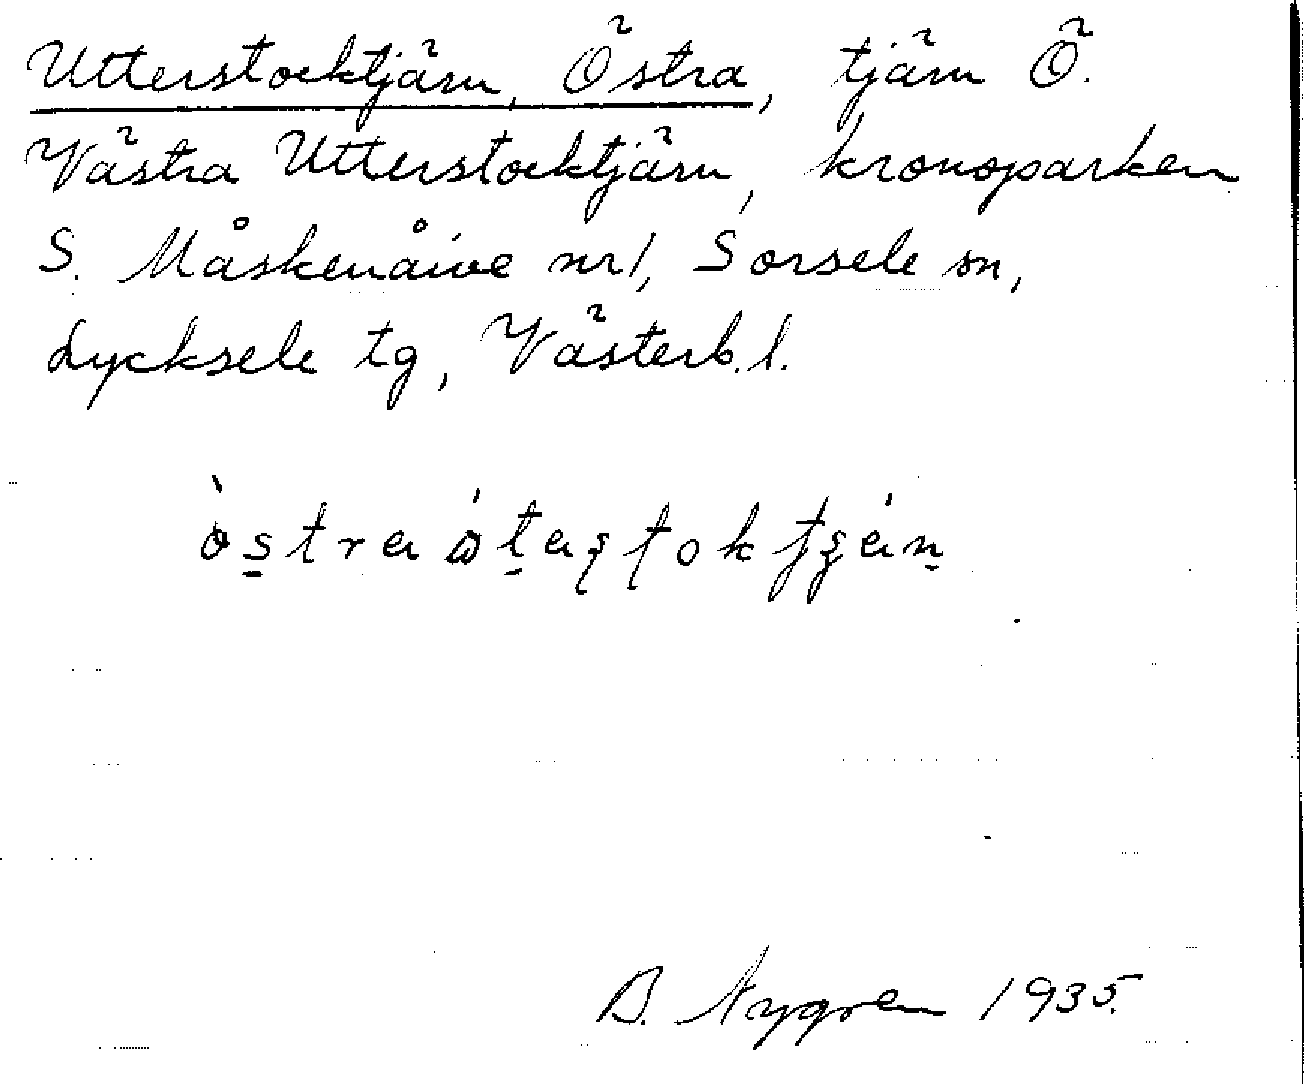 Utterstocktjärn, Östra, tjärn Ö.
Västra Utterstocktjärn, kronoparken
S. Måskenåive nr 1, Sorsele sn,
Lycksele tg, Västerb. l.
B. Nygren 1935.